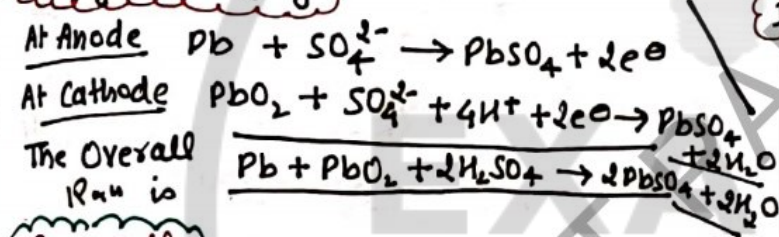 At Anode Pb + SO₄²⁻ → PbSO₄ + 2e⊖
At Cathode PbO₂ + SO₄²⁻ + 4H⁺ + 2e⊖ → PbSO₄ + 2H₂O
The Overall
Rxn is Pb + PbO₂ + 2H₂SO₄ → 2PbSO₄ + 2H₂O